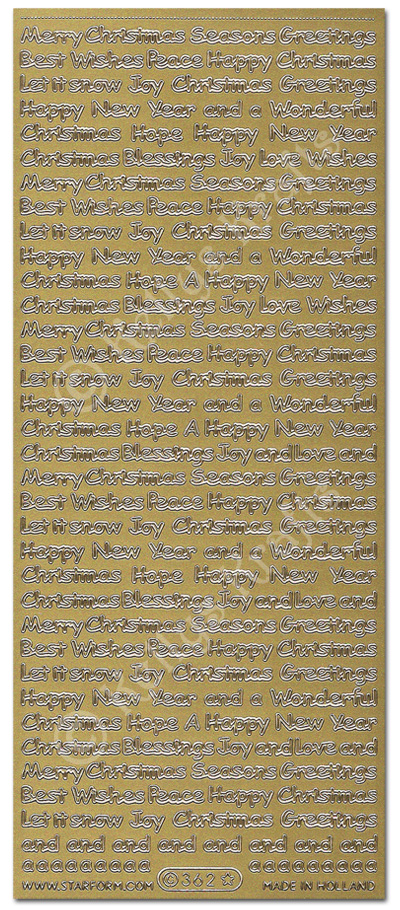 Merry Christmas Seasons Greetings
Best Wishes Peace Happy Christmas
Let it snow Joy Christmas Greetings
Happy New Year and a Wonderful
Christmas Hope Happy New Year
Christmas Blessings Joy Love Wishes
Merry Christmas Seasons Greetings
Best Wishes Peace Happy Christmas
Let it snow Joy Christmas Greetings
Happy New Year and a Wonderful
Christmas Hope A Happy New Year
Christmas Blessings Joy Love Wishes
Merry Christmas Seasons Greetings
Best Wishes Peace Happy Christmas
Let it snow Joy Christmas Greetings
Happy New Year and a Wonderful
Christmas Hope A Happy New Year
Christmas Blessings Joy and Love and
Merry Christmas Seasons Greetings
Best Wishes Peace Happy Christmas
Let it snow Joy Christmas Greetings
Happy New Year and a Wonderful
Christmas Hope Happy New Year
Christmas Blessings Joy and Love and
Merry Christmas Seasons Greetings
Best Wishes Peace Happy Christmas
Let it snow Joy Christmas Greetings
Happy New Year and a Wonderful
Christmas Hope A Happy New Year
Christmas Blessings Joy and Love and
Merry Christmas Seasons Greetings
Best Wishes Peace Happy Christmas
Let it snow Joy Christmas Greetings
and and and and and and and and
a a a a a a a a a a a a a a a a a a
WWW.STARFORM.COM © 362 ☆ MADE IN HOLLAND